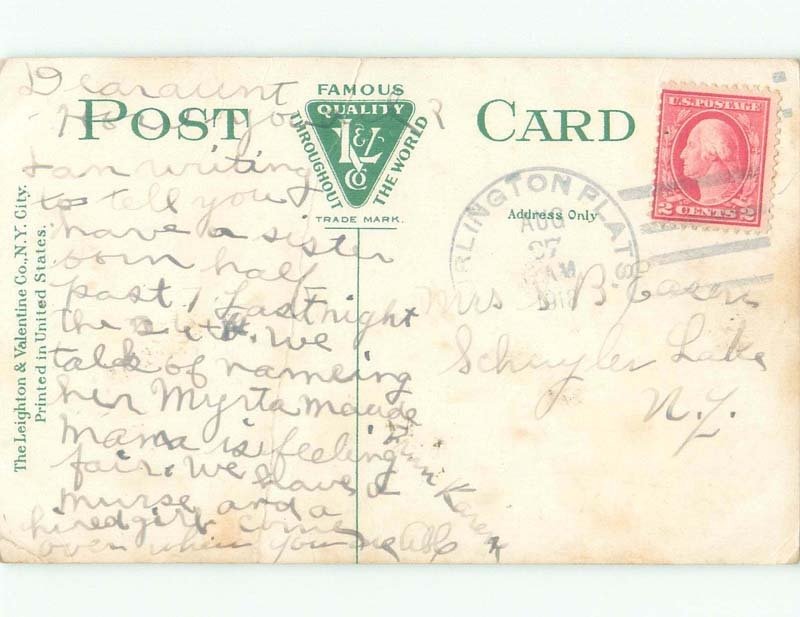 Dear aunt
POST CARD
FAMOUS
QUALITY
L&V
CO
THROUGHOUT
THE WORLD
TRADE MARK.
The Leighton & Valentine Co., N.Y. City.
Printed in United States.
Address Only
U.S. POSTAGE
2 CENTS 2
RLINGTON FLATS.
AUG
27
AM
1918
I am writing
to tell you
have a sister
born half
past 7 Last night
the We
talk of nameing
her Myrta maude
mama is feeling
fair. We have a
nurse and a
hired girl come
over when you are able
from Karen
Mrs B
Schuyler Lake
N.Y.